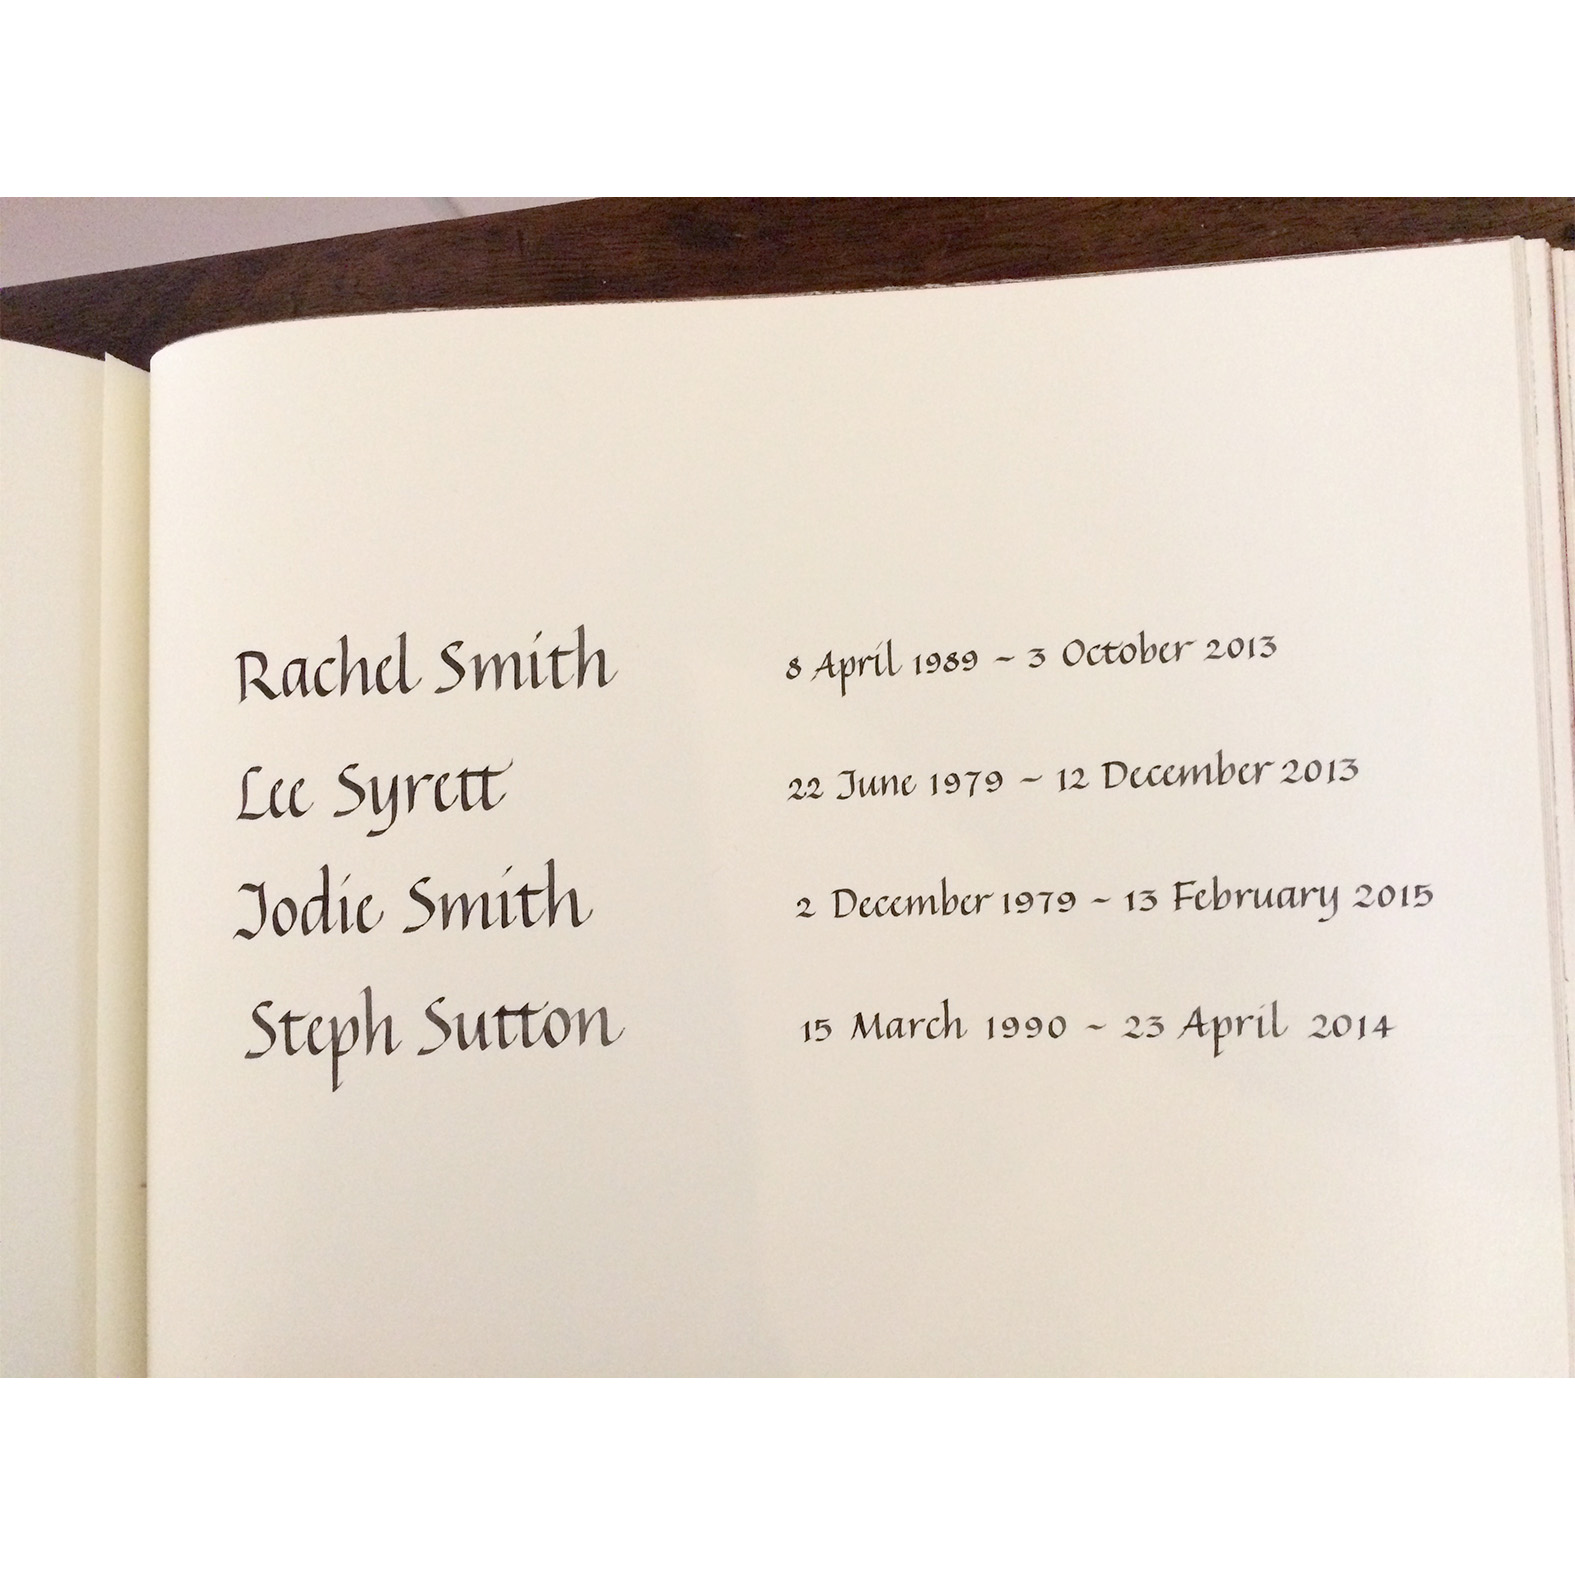 Rachel Smith 8 April 1989 ~ 3 October 2013
Lee Syrett 22 June 1979 ~ 12 December 2013
Jodie Smith 2 December 1979 ~ 13 February 2015
Steph Sutton 15 March 1990 ~ 23 April 2014